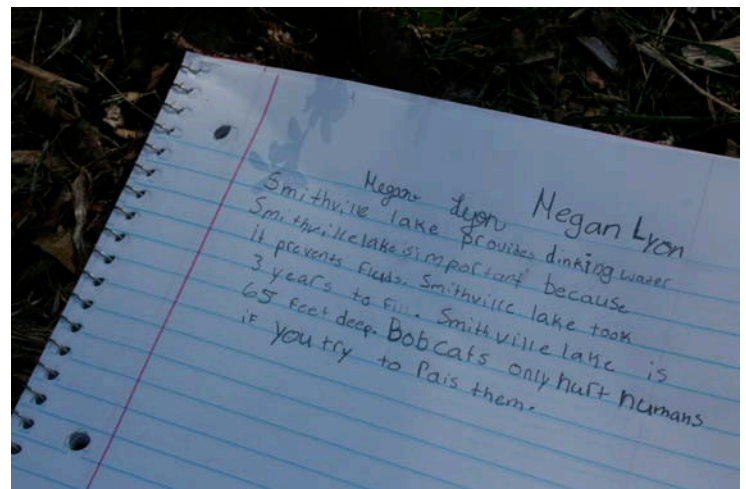 Megan Lyon Megan Lyon
Smithville lake provides dinking water
Smithville lake is important because
it prevents fluds. Smithville lake took
3 years to fill. Smithville lake is
65 feet deep. Bobcats only hurt humans
if you try to Pais them.